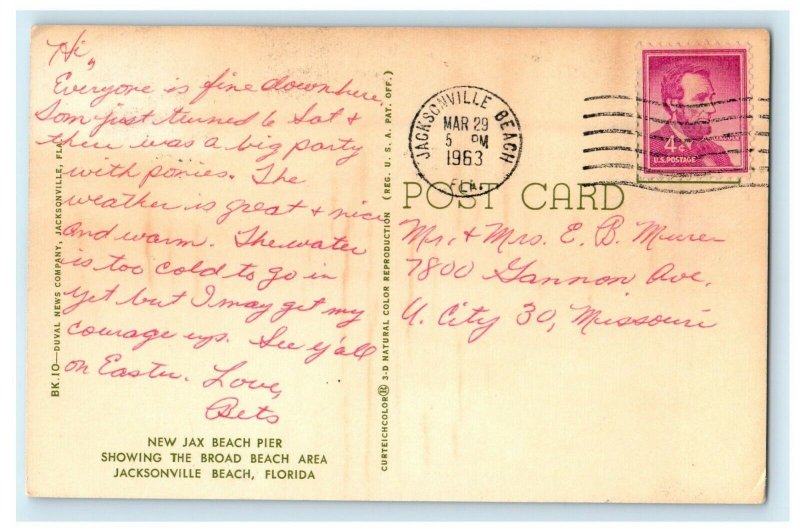 Hi,
Everyone is fine down here.
Tom just turned 6 Sat &
there was a big party
with ponies. The
weather is great & nice
and warm. The water
is too cold to go in
yet but I may get my
courage up. See y'all
on Easter. Love,
Bets
NEW JAX BEACH PIER
SHOWING THE BROAD BEACH AREA
JACKSONVILLE BEACH, FLORIDA
BK.10—DUVAL NEWS COMPANY, JACKSONVILLE, FLA.
CURTEICHCOLOR® 3-D NATURAL COLOR REPRODUCTION (REG. U. S. A. PAT. OFF.)
JACKSONVILLE BEACH
MAR 29
5 PM
1963
FLA.
4¢
U.S. POSTAGE
POST CARD
Mr. & Mrs. E. B. Murer
7800 Gannon Ave.
U. City 30, Missouri